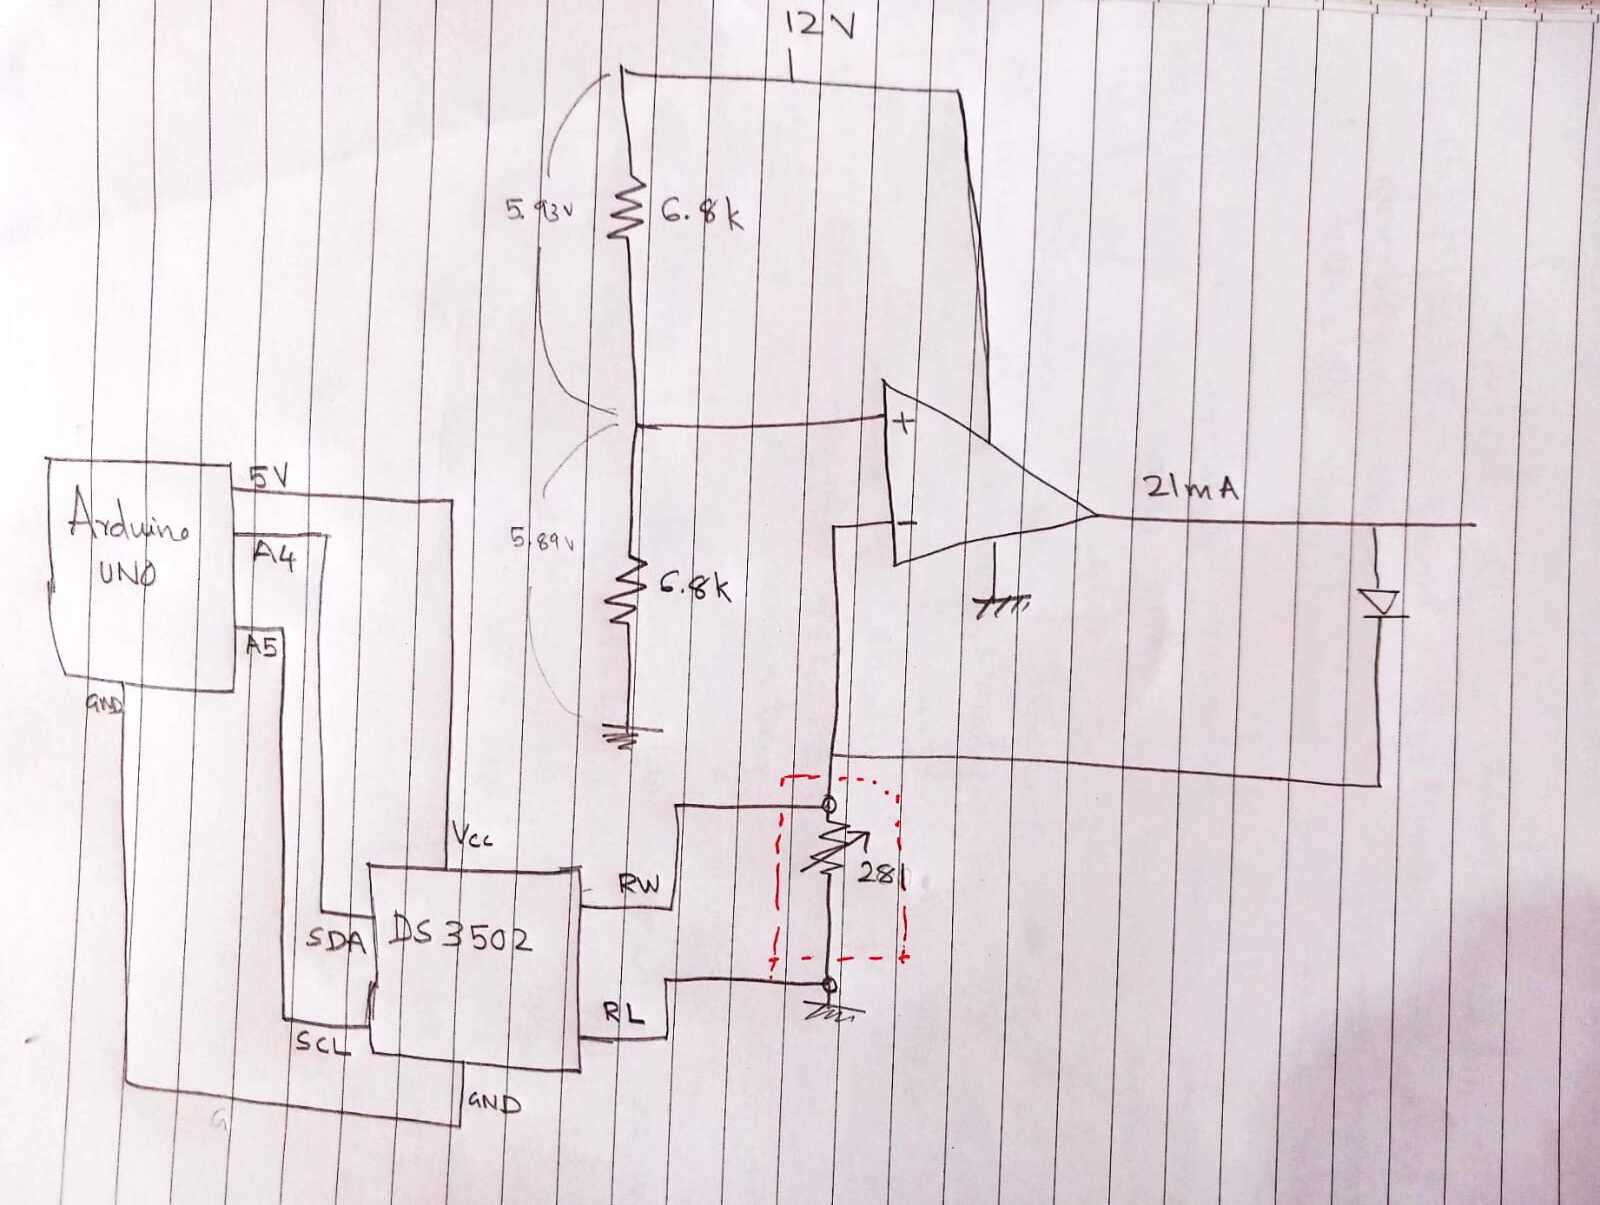 12V
5.93v
6.8k
5V
Arduino
UNO
A4
A5
GND
5.89v
6.8k
+
-
21mA
Vcc
RW
28
SDA
DS3502
RL
SCL
GND
G